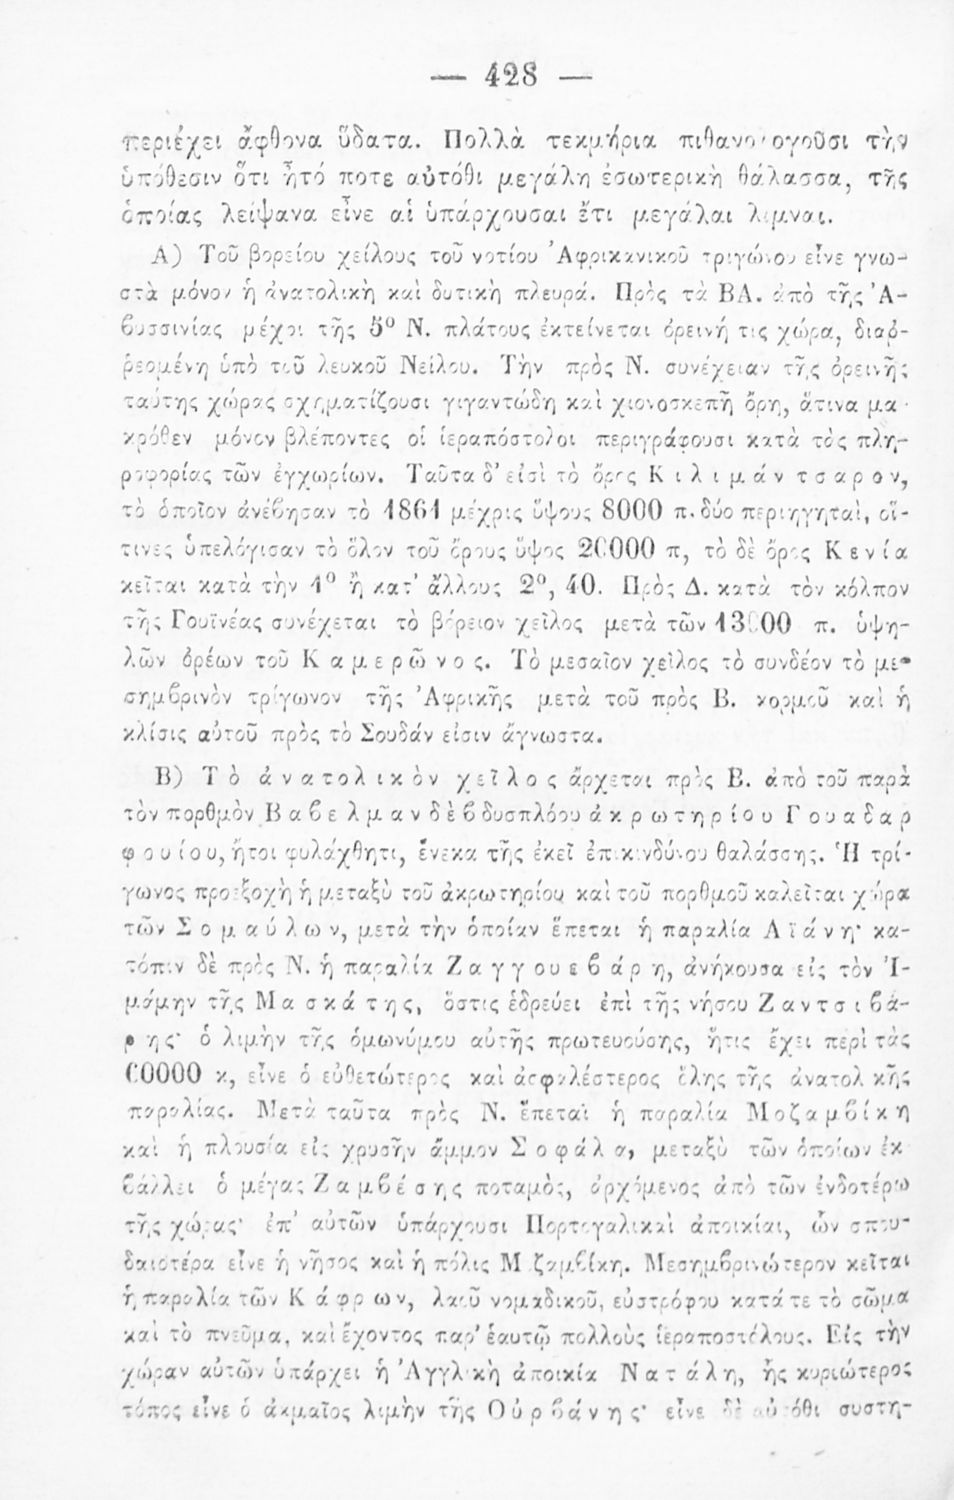 — 428 —
περιέχει ἄφθονα ὕδατα. Πολλὰ τεκμήρια πιθανολογοῦσι τὴν
ὑπόθεσιν ὅτι ἦτό ποτε αὐτόθι μεγάλη ἐσωτερικὴ θάλασσα, τῆς
ὁποίας λείψανα εἶνε αἱ ὑπάρχουσαι ἔτι μεγάλαι λίμναι.
Α) Τοῦ βορείου χείλους τοῦ νοτίου Ἀφρικανικοῦ τριγώνου εἶνε γνω-
στὰ μόνον ἡ ἀνατολικὴ καὶ δυτικὴ πλευρά. Πρὸς τὰ ΒΑ. ἀπὸ τῆς Ἀ-
βυσσινίας μέχρι τῆς 5° Ν. πλάτους ἐκτείνεται ὀρεινή τις χώρα, διαῤ-
ῥεομένη ὑπὸ τοῦ λευκοῦ Νείλου. Τὴν πρὸς Ν. συνέχειαν τῆς ὀρεινῆς
ταύτης χώρας σχηματίζουσι γιγαντώδη καὶ χιονοσκεπῆ ὄρη, ἅτινα μα-
κρόθεν μόνον βλέποντες οἱ ἱεραπόστολοι περιγράφουσι κατὰ τὸς πλη-
ροφορίας τῶν ἐγχωρίων. Ταῦτα δ' εἰσὶ τὸ ὄρος Κιλιμάντσαρον,
τὸ ὁποῖον ἀνέβησαν τὸ 1861 μέχρις ὕψους 8000 π. δύο περιηγηταὶ, οἵ-
τινες ὑπελόγισαν τὸ ὅλον τοῦ ὄρους ὕψος 20000 π, τὸ δὲ ὄρος Κενία
κεῖται κατὰ τὴν 1° ἢ κατ' ἄλλους 2°, 40. Πρὸς Δ. κατὰ τὸν κόλπον
τῆς Γουϊνέας συνέχεται τὸ βόρειον χεῖλος μετὰ τῶν 13000 π. ὑψη-
λῶν ὀρέων τοῦ Καμερῶνος. Τὸ μεσαῖον χεῖλος τὸ συνδέον τὸ με-
σημβρινὸν τρίγωνον τῆς Ἀφρικῆς μετὰ τοῦ πρὸς Β. κορμοῦ καὶ ἡ
κλίσις αὐτοῦ πρὸς τὸ Σουδάν εἰσιν ἄγνωστα.
Β) Τὸ ἀνατολικὸν χεῖλος ἄρχεται πρὸς Β. ἀπὸ τοῦ παρὰ
τὸν πορθμὸν Βαβελμανδὲβ δυσπλόου ἀκρωτηρίου Γουαδαρ
φουίου, ἤτοι φυλάχθητι, ἕνεκα τῆς ἐκεῖ ἐπικινδύνου θαλάσσης. Ἡ τρί-
γωνος προεξοχὴ ἡ μεταξὺ τοῦ ἀκρωτηρίου καὶ τοῦ πορθμοῦ καλεῖται χώρα
τῶν Σομαύλων, μετὰ τὴν ὁποίαν ἕπεται ἡ παραλία Ἀϊάνη· κα-
τόπιν δὲ πρὸς Ν. ἡ παραλία Ζαγγουεβάρη, ἀνήκουσα εἰς τὸν Ἰ-
μάμην τῆς Μασκάτης, ὅστις ἑδρεύει ἐπὶ τῆς νήσου Ζαντσιβά-
ρης· ὁ λιμὴν τῆς ὁμωνύμου αὐτῆς πρωτευούσης, ἥτις ἔχει περὶ τὰς
60000 κ, εἶνε ὁ εὐθετώτερος καὶ ἀσφαλέστερος ὅλης τῆς ἀνατολικῆς
παραλίας. Μετὰ ταῦτα πρὸς Ν. ἕπεται ἡ παραλία Μοζαμβίκη
καὶ ἡ πλουσία εἰς χρυσῆν ἄμμον Σοφάλα, μεταξὺ τῶν ὁποίων ἐκ-
βάλλει ὁ μέγας Ζαμβέσης ποταμὸς, ἀρχόμενος ἀπὸ τῶν ἐνδοτέρω
τῆς χώρας· ἐπ' αὐτῶν ὑπάρχουσι Πορτογαλικαὶ ἀποικίαι, ὧν σπου-
δαιοτέρα εἶνε ἡ νῆσος καὶ ἡ πόλις Μοζαμβίκη. Μεσημβρινώτερον κεῖται
ἡ παραλία τῶν Κάφρων, λαοῦ νομαδικοῦ, εὐστρόφου κατά τε τὸ σῶμα
καὶ τὸ πνεῦμα, καὶ ἔχοντος παρ' ἑαυτῷ πολλοὺς ἱεραποστόλους. Εἰς τὴν
χώραν αὐτῶν ὑπάρχει ἡ Ἀγγλικὴ ἀποικία Νατάλη, ἧς κυριώτερος
τόπος εἶνε ὁ ἀκμαῖος λιμὴν τῆς Οὐρβάνης· εἶνε δὲ αὐτόθι συστη-